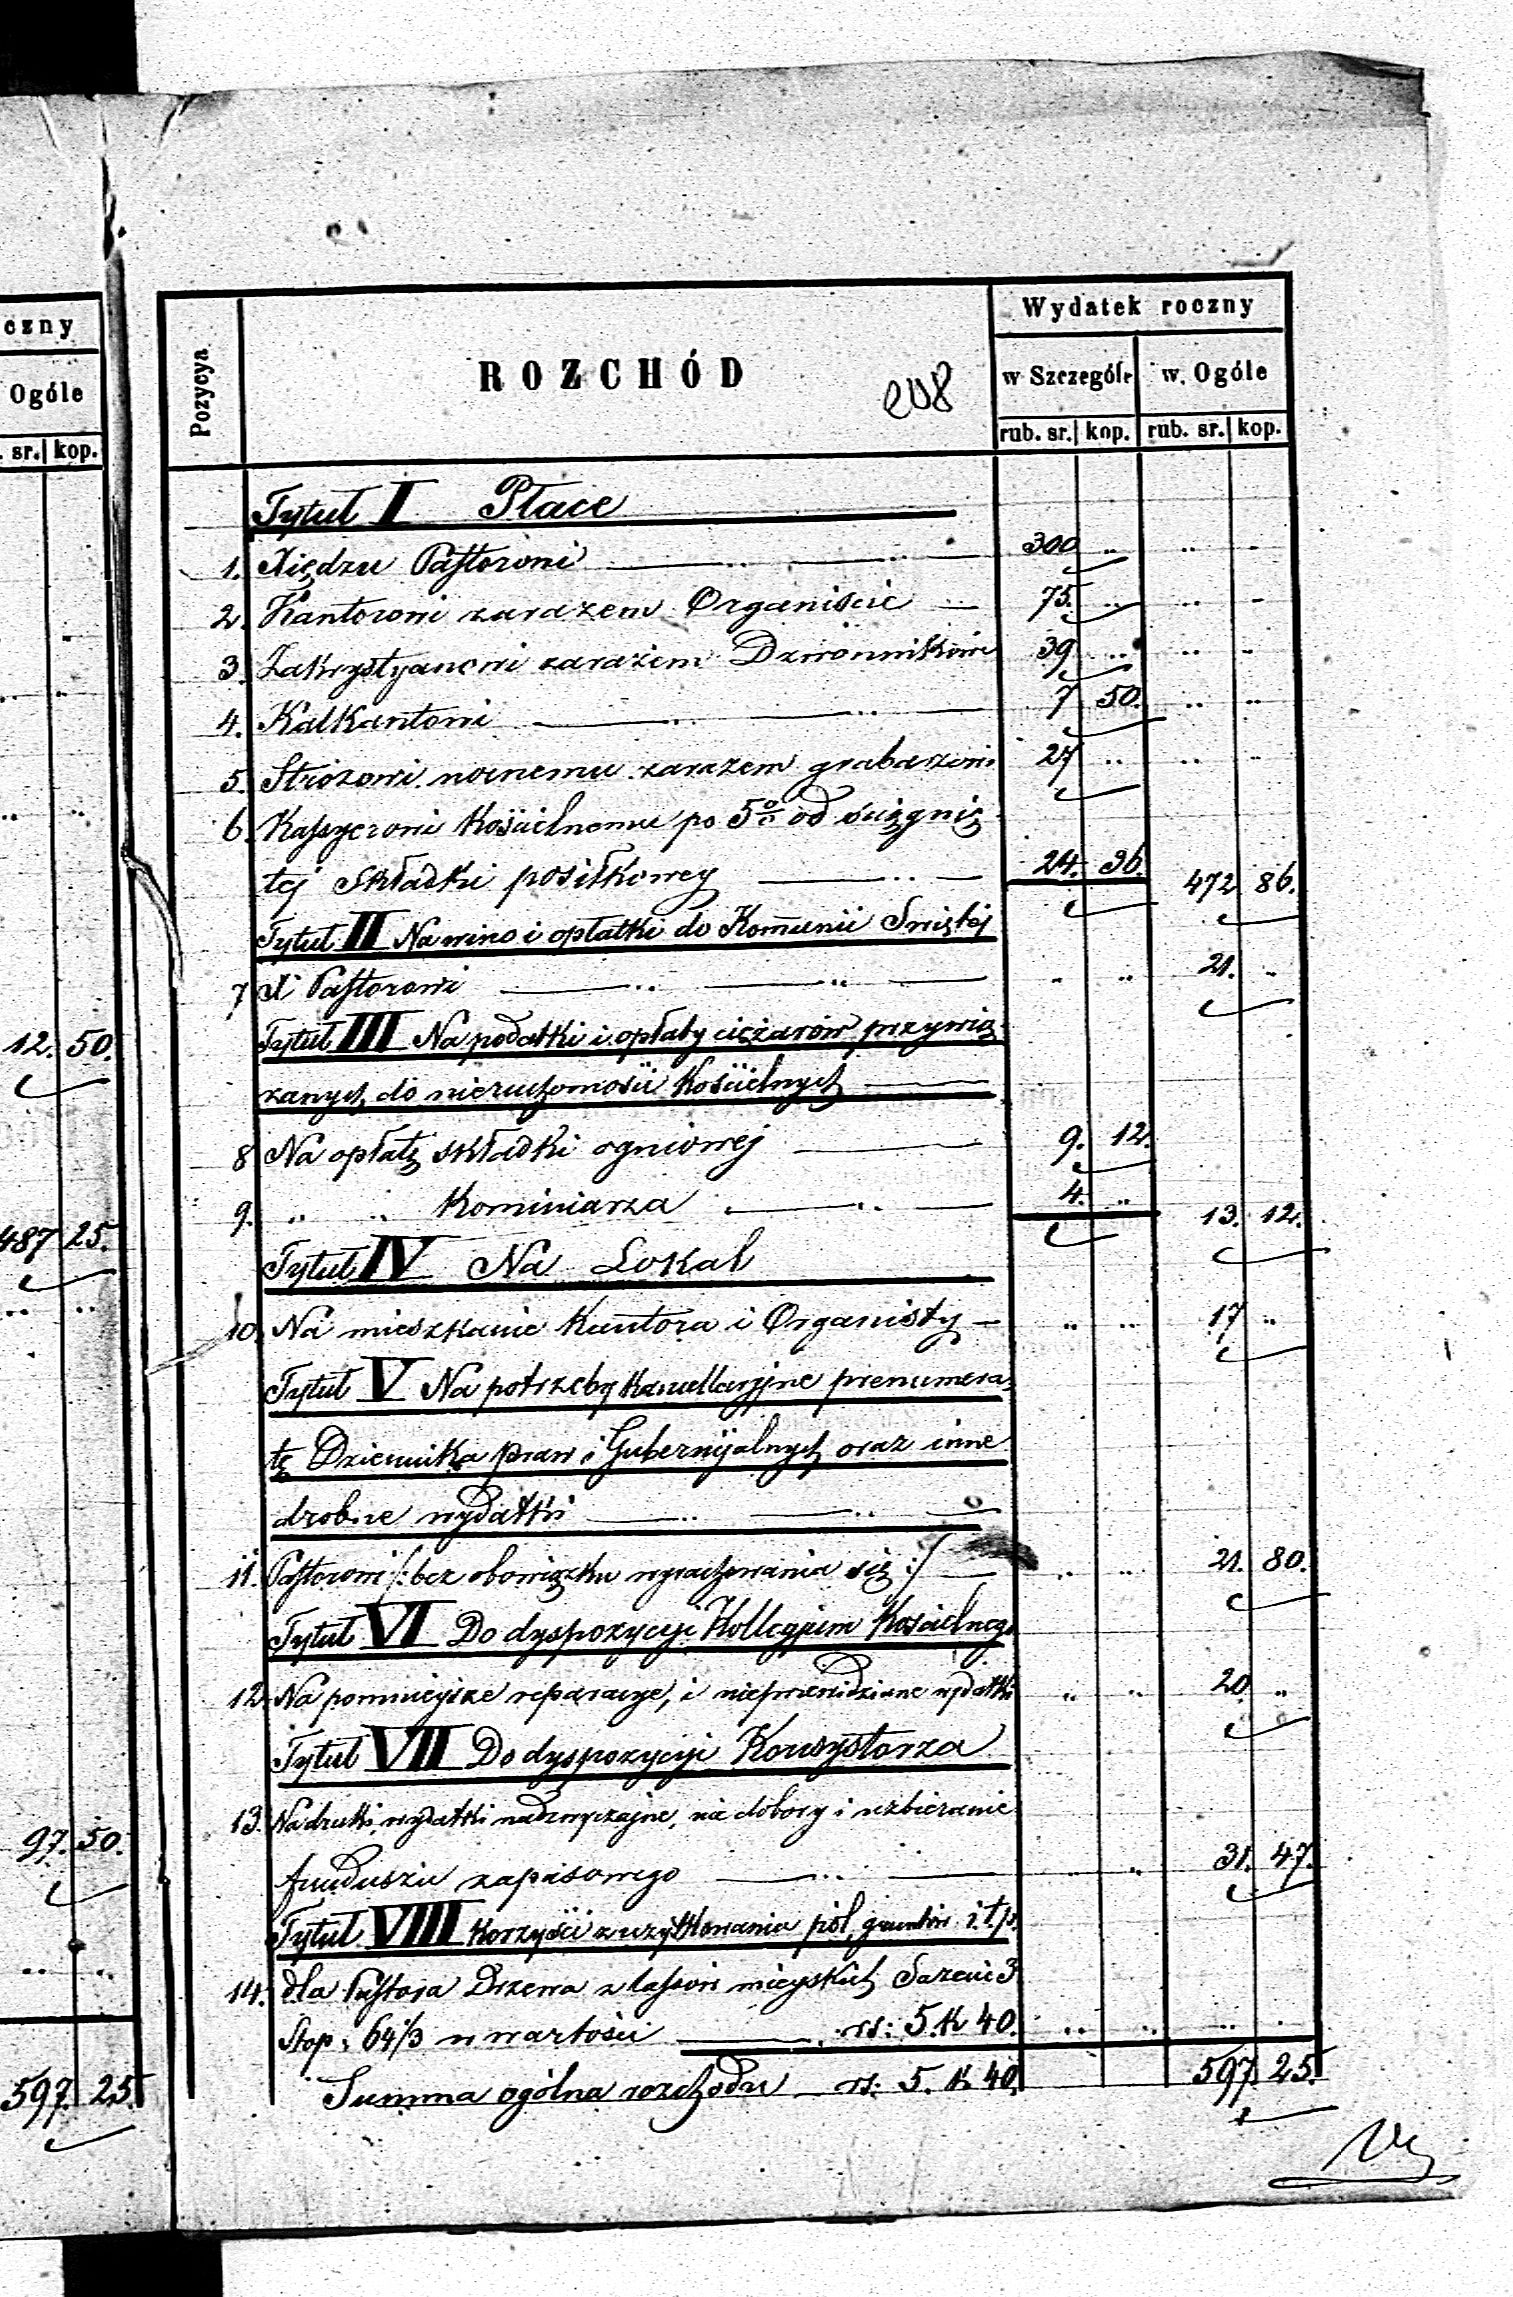 czny
Ogóle
. sr. kop.
12. 50.
487 25.
97. 50.
597. 25.
Wydatek roczny
Pozycya ROZCHÓD 208 w Szczególe w. Ogóle
rub. sr. kop. rub. sr. kop.
Tytuł I Płace
1. Xiędzu Pastorowi 300 .. .. ..
2. Kantorowi zarazem Organiście 75. .. .. ..
3. Zakrystyanowi zarazem Dzwonnikowi 39 .. .. ..
4. Kalkantowi 7 50. .. ..
5. Stróżowi nocnemu zarazem grabarzowi 27 .. .. ..
6. Kassyerowi Kościelnemu po 5% od ściągnię-
tej Składki posiłkowey 24. 36. 472 86.
Tytuł II Na wino i opłatki do Komunii Swiętej
7 X Pastorowi .. .. 21. ..
Tytuł III Na podatki i opłaty ciężarów przywią-
zanych do nieruchomości Kościelnych
8 Na opłatę składki ogniowej 9. 12.
9. .. .. Kominiarza 4. .. 13. 12.
Tytuł IV Na Lokal
10. Na mieszkanie Kantora i Organisty .. .. 17 ..
Tytuł V Na potrzeby Kancellaryjne prenumera-
tę Dziennika praw i Gubernijalnych oraz inne
drobne wydatki
11. Pastorowi /: bez obowiązku wyrachowania się :/ .. .. 21. 80.
Tytuł VI Do dyspozycyi Kollegjum Kościelnego
12. Na pomniejsze reparacye, i nieprzewidziane wydatki .. .. 20 ..
Tytuł VII Do dyspozycyi Konsystorza
13. Na druki, wydatki nadzwyczajne, na dobory i uzbieranie
funduszu zapasowego .. .. 31. 47.
Tytuł VIII Korzyści z użytkowania pól, gruntów i.t.p.
14. dla Pastora Drzewa z lassów mieyskich Sazeni 3
Stop: 64/3 w wartości rs: 5. K 40. .. .. .. .
Summa ogólna rozchodu rs: 5. K 40. 597. 25.